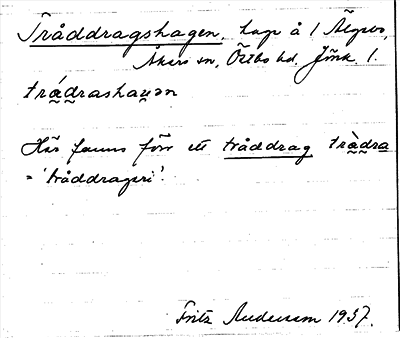 Tråddragshagen, hage å 1 Älgebo,
Åkers sn, Östbo hd. Jönk. l.
trádrashaɡən
Här fanns förr ett tråddrag tràdra
= 'tråddrageri'.
Fritz Anderson 1937.